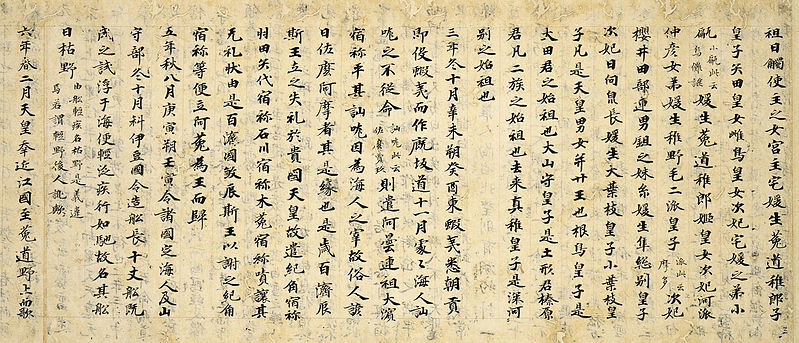 祖日觸使主之女宮主宅媛生菟道稚郎子
皇子矢田皇女雌鳥皇女次妃宅媛之弟小
甂小甂此云烏儺謎媛生菟道稚郎姬皇女次妃河派
仲彥女弟媛生稚野毛二派皇子派此云摩多次妃
櫻井田部連男鉏之妹糸媛生隼総別皇子
次妃日向泉長媛生大葉枝皇子小葉枝皇
子凡是天皇男女并廿王也根鳥皇子是
大田君之始祖也大山守皇子是土形君榛原
君凡二族之始祖也去来真稚皇子是深河
別之始祖也
三年冬十月辛未朔癸酉東蝦夷悉朝貢
即役蝦夷而作厩坂道十一月處〻海人訕
哤之不從命訕哤此云佐麼賣玖則遣阿曇連祖大濱
宿祢平其訕哤因為海人之宰故俗人諺
曰佐麼阿摩者其是緣也是歲百濟辰
斯王立之失礼於貴國天皇故遣紀角宿祢
羽田矢代宿祢石川宿祢木菟宿祢嘖讓其
无礼狀由是百濟國敦辰斯王以謝之紀角
宿祢等便立阿菟為王而歸
五年秋八月庚寅朔壬寅令諸國定海人及山
守部冬十月科伊豆國令造舩長十丈舩既
成之試浮于海便輕泛疾行如馳故名其舩
曰枯野由舩輕疾名枯野是義違焉若謂輕野後人訛歟
六年春二月天皇幸近江國至菟道野上而歌